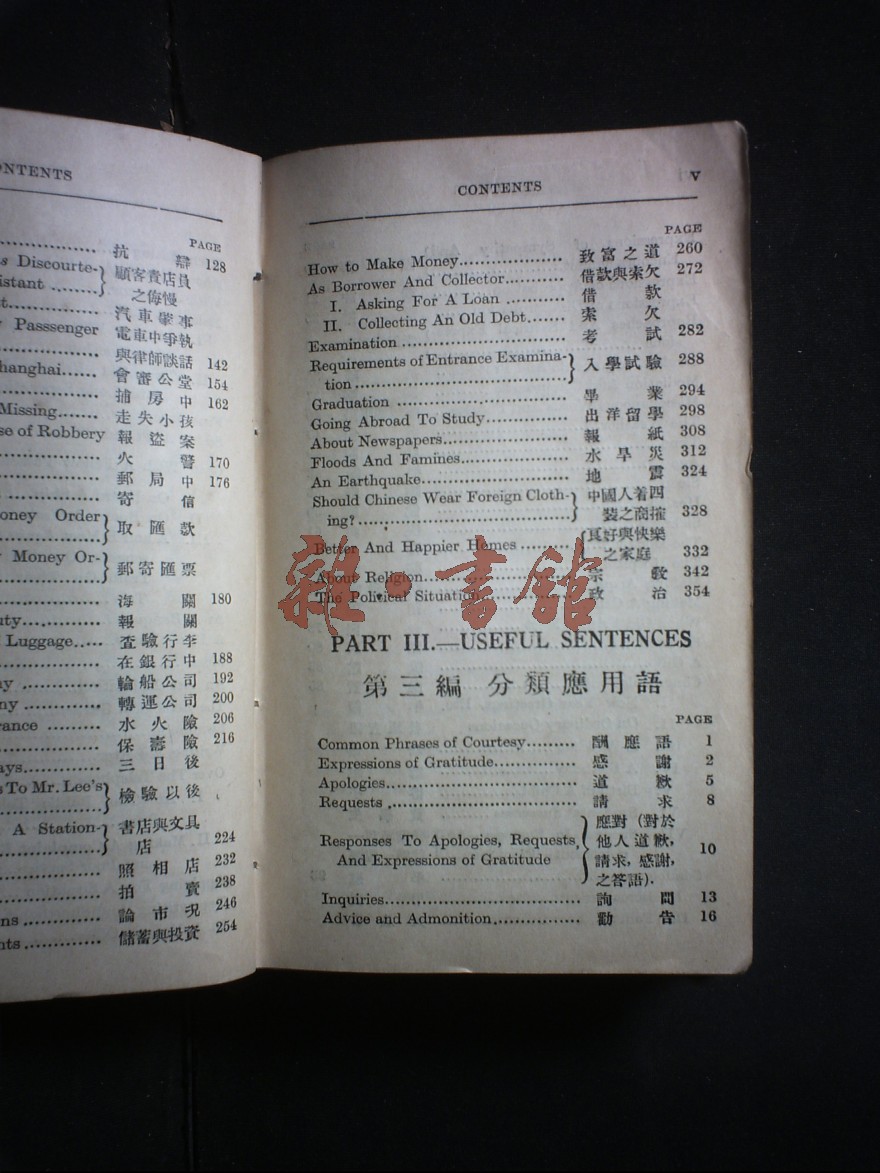 CONTENTS
PAGE
抗 辯 128
s Discourte-
sistant 顧客責店員
之侮慢
t 汽車肇事
Passsenger 電車中爭執
與律師談話 142
hanghai 會審公堂 154
捕房中 162
Missing 走失小孩
se of Robbery 報盜案
火警 170
郵局中 176
寄信
oney Order 取匯款
Money Or- 郵寄匯票
海關 180
uty 報關
Luggage 查驗行李
在銀行中 188
ny 輪船公司 192
ny 轉運公司 200
rance 水火險 206
保壽險 216
ays 三日後
s To Mr. Lee's 檢驗以後
A Station- 書店與文具
店 224
照相店 232
拍賣 238
ns 論市況 246
nts 儲蓄與投資 254
CONTENTS v
PAGE
How to Make Money 致富之道 260
As Borrower And Collector 借款與索欠 272
I. Asking For A Loan 借款
II. Collecting An Old Debt 索欠
Examination 考試 282
Requirements of Entrance Examina-
tion 入學試驗 288
Graduation 畢業 294
Going Abroad To Study 出洋留學 298
About Newspapers 報紙 308
Floods And Famines 水旱災 312
An Earthquake 地震 324
Should Chinese Wear Foreign Cloth- 中國人着西
ing? 裝之商搉 328
Better And Happier Homes 良好與快樂
之家庭 332
About Religion 宗教 342
The Political Situation 政治 354
PART III.—USEFUL SENTENCES
第三編 分類應用語
PAGE
Common Phrases of Courtesy 酬應語 1
Expressions of Gratitude 感謝 2
Apologies 道歉 5
Requests 請求 8
Responses To Apologies, Requests, And Expressions of Gratitude 應對 (對於
他人道歉,
請求,感謝,
之答語). 10
Inquiries 詢問 13
Advice and Admonition 勸告 16
雜·書館